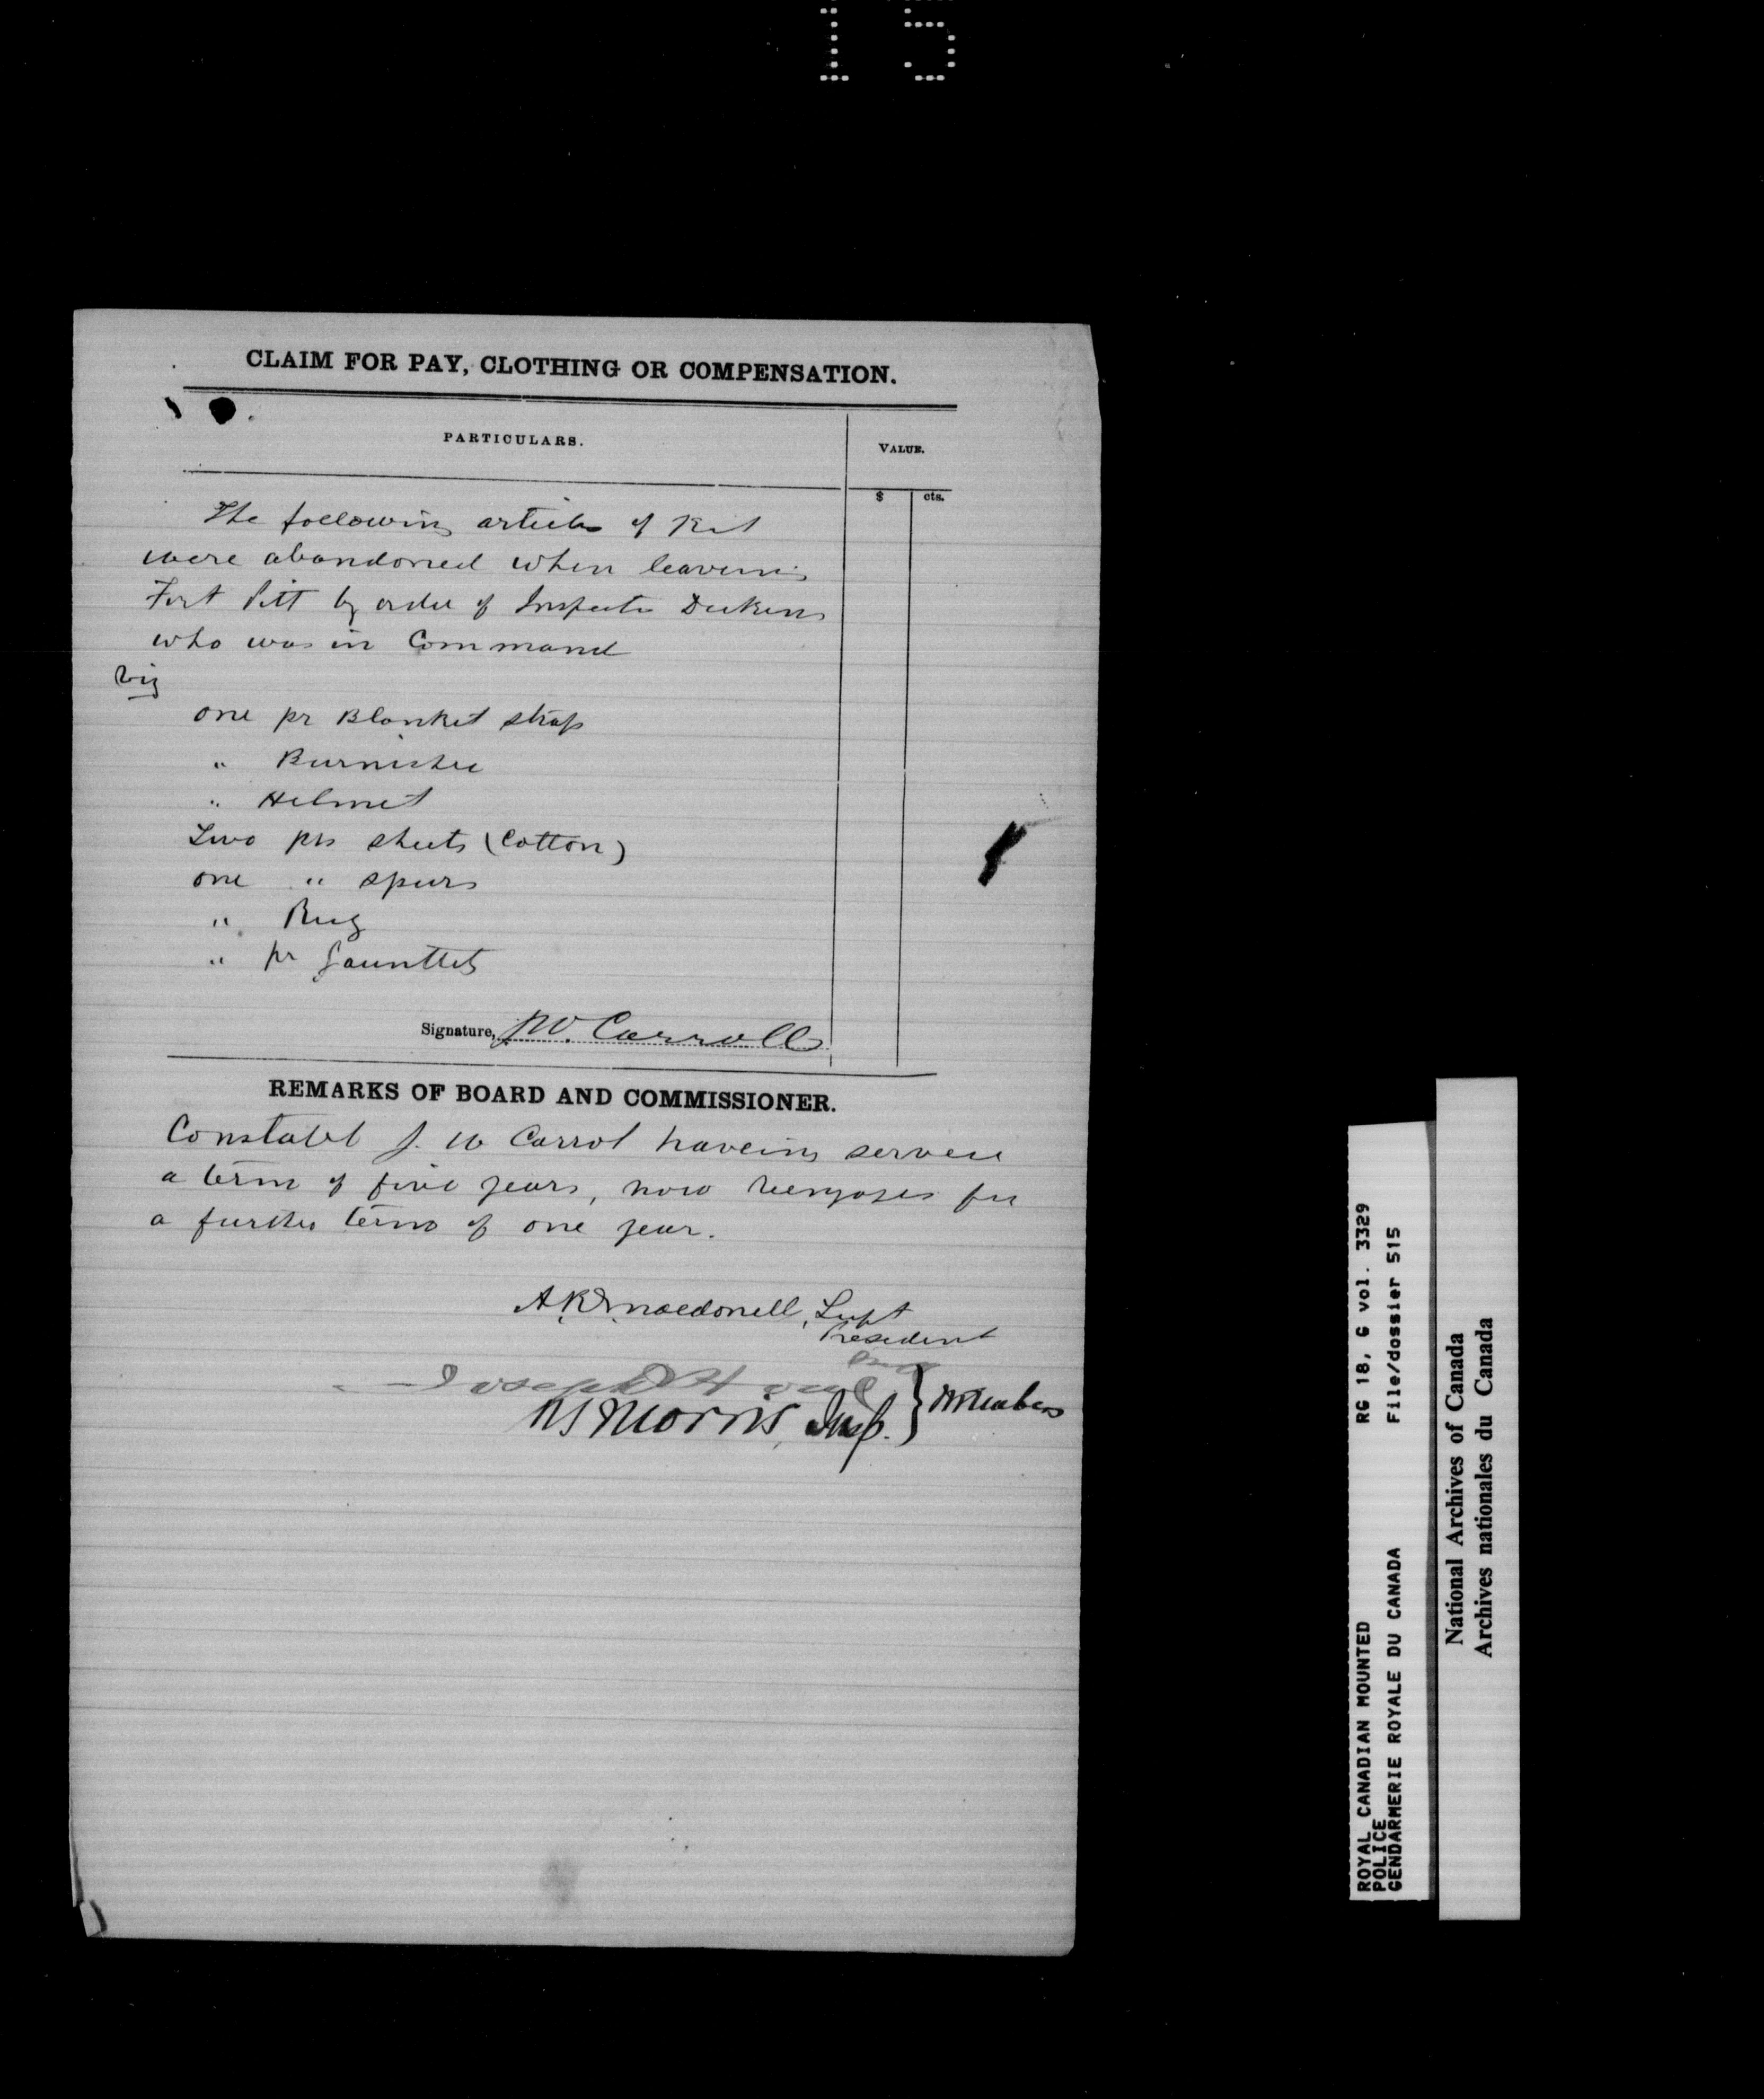 15
CLAIM FOR PAY, CLOTHING OR COMPENSATION.
PARTICULARS.
VALUE.
$ cts.
The following articles of Kit
were abandoned when leaveing
Fort Pitt by order of Inspector Dickens
who was in Command
viz
one pr Blanket straps
" Burnisher
" Helmet
Two prs sheets (Cotton)
one " spurs
" Rug
" pr Gauntlets
Signature, J W. Carroll
REMARKS OF BOARD AND COMMISSIONER.
Constabl J. W Carrol haveing served
a term of five years, now reengages for
a further term of one year.
A.R. Macdonell, Supt
President
Joseph Howe
W S Morris, Insp. } Members
ROYAL CANADIAN MOUNTED RG 18, G vol. 3329
POLICE
GENDARMERIE ROYALE DU CANADA File/dossier 515
National Archives of Canada
Archives nationales du Canada